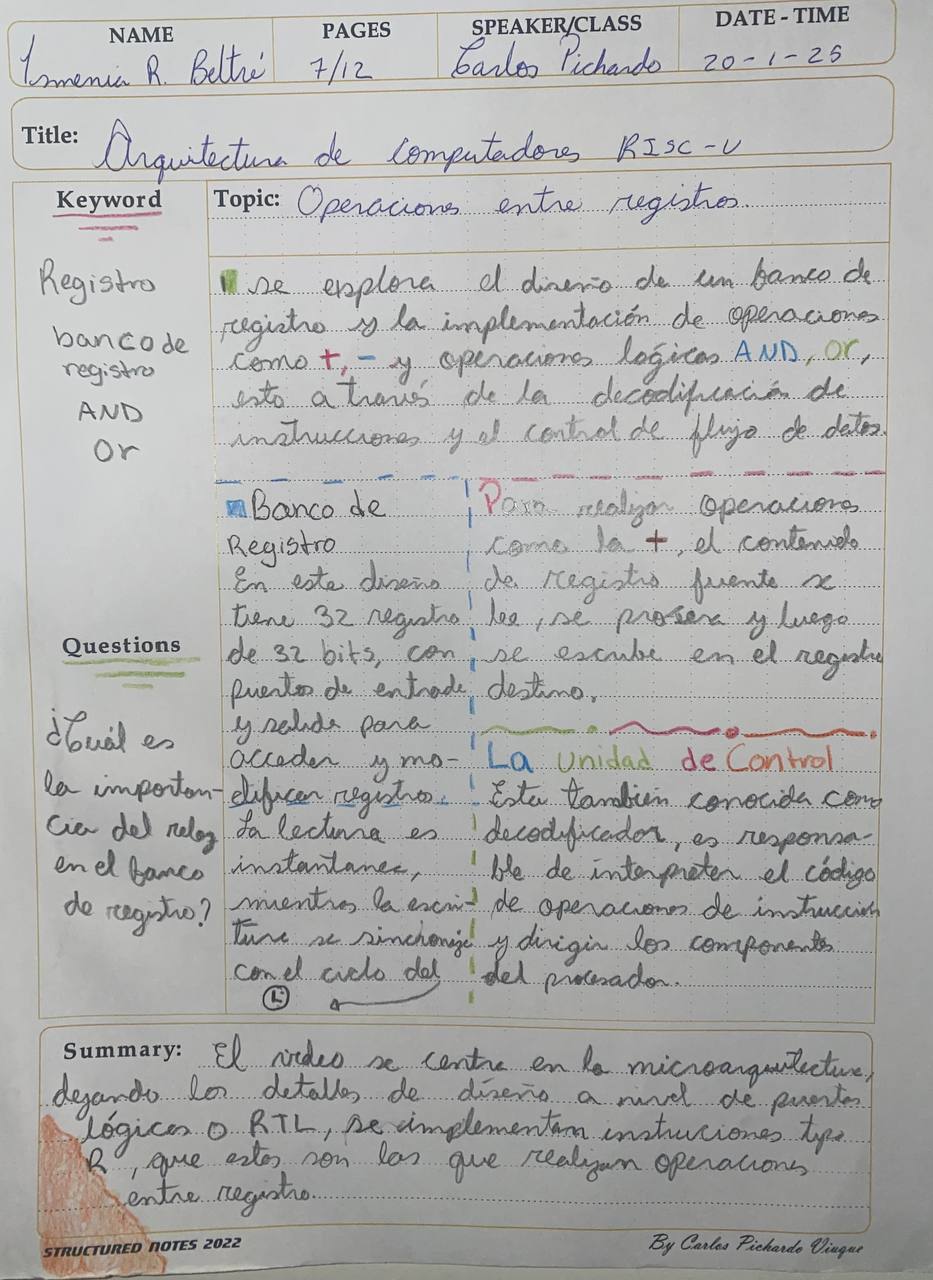 NAME
PAGES
SPEAKER/CLASS
DATE - TIME
Ismenia R. Beltré
7/12
Carlos Pichardo
20-1-25
Title: Arquitectura de computadores RISC-V
Keyword
Registro
banco de
registro
AND
Or
Questions
¿Cuál es
la importan-
cia del reloj
en el banco
de registro?
Topic: Operaciones entre registros.
se explora el diseño de un banco de
registro y la implementación de operaciones
como +, - y operaciones logicas AND, Or,
esto a través de la decodificación de
instrucciones y el control de flujo de datos.
Banco de
Registro
En este diseño
tiene 32 registro
de 32 bits, con
puertos de entrada
y salida para
acceder y mo-
dificar registros.
La lectura es
instantanea,
mientras la escri-
tura se sinchoniza
con el ciclo del
Para realizar operaciones
como la +, el contenido
de registro fuente se
lee, se prosesa y luego
se escribe en el registro
destino.
La Unidad de Control
Esta también conocida como
decodificador, es responsa-
ble de interpreter el código
de operaciones de instrucción
y dirigir los componentes
del procesador.
Summary: El video se centra en la microarquitectura,
dejando los detalles de diseño a nivel de puertas
lógicas o RTL, se implementan instruciones type
R, que estas son las que realizan operaciones
entre registro.
STRUCTURED NOTES 2022
By Carlos Pichardo Viuque